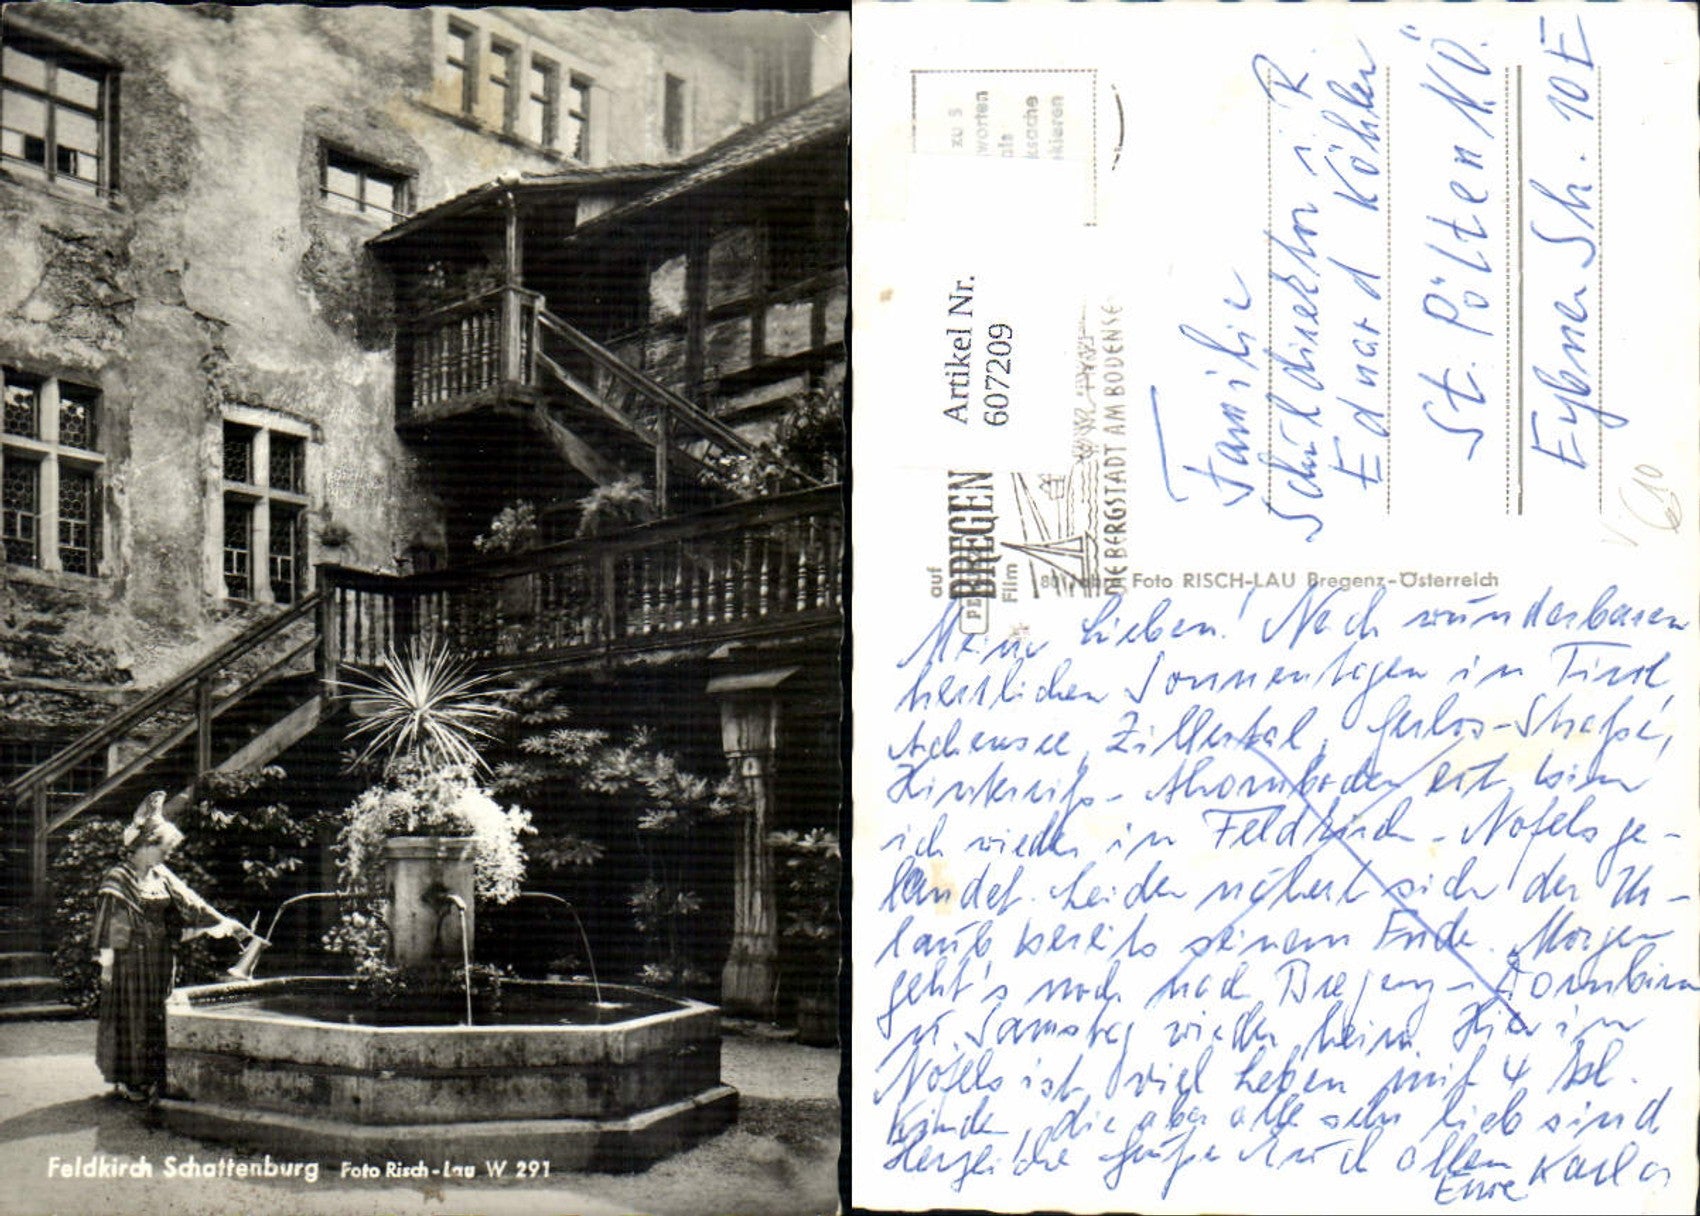 Feldkirch Schattenburg Foto Risch-Lau W 291
zu 5
worten
als
ksache
kieren
Artikel Nr.
607209
auf
BREGEN
PE
Film
DIE BERGSTADT AM BODENSE
Foto RISCH-LAU Bregenz-Österreich
Familie
Schuldirektor i R
Eduard Köhler
St. Pölten N.Ö.
Eybnerstr. 10E
610
Meine Lieben! Nach wunderbaren
herrlichen Sonnentagen in Tirol,
Achensee, Zillertal, Gerlos-Straße,
Ahornboden etc. bin
ich wieder in Feldkirch-Nofels ge-
landet. Leider nähert sich der Ur-
laub bereits seinem Ende. Morgen
geht's noch nach Bregenz-Dornbirn
u. Samstag wieder heim. Hier in
Nofels ist viel Leben mit 4
Kinder, die aber alle sehr lieb sind
Herzliche Grüße Euch allen
Eure Karla